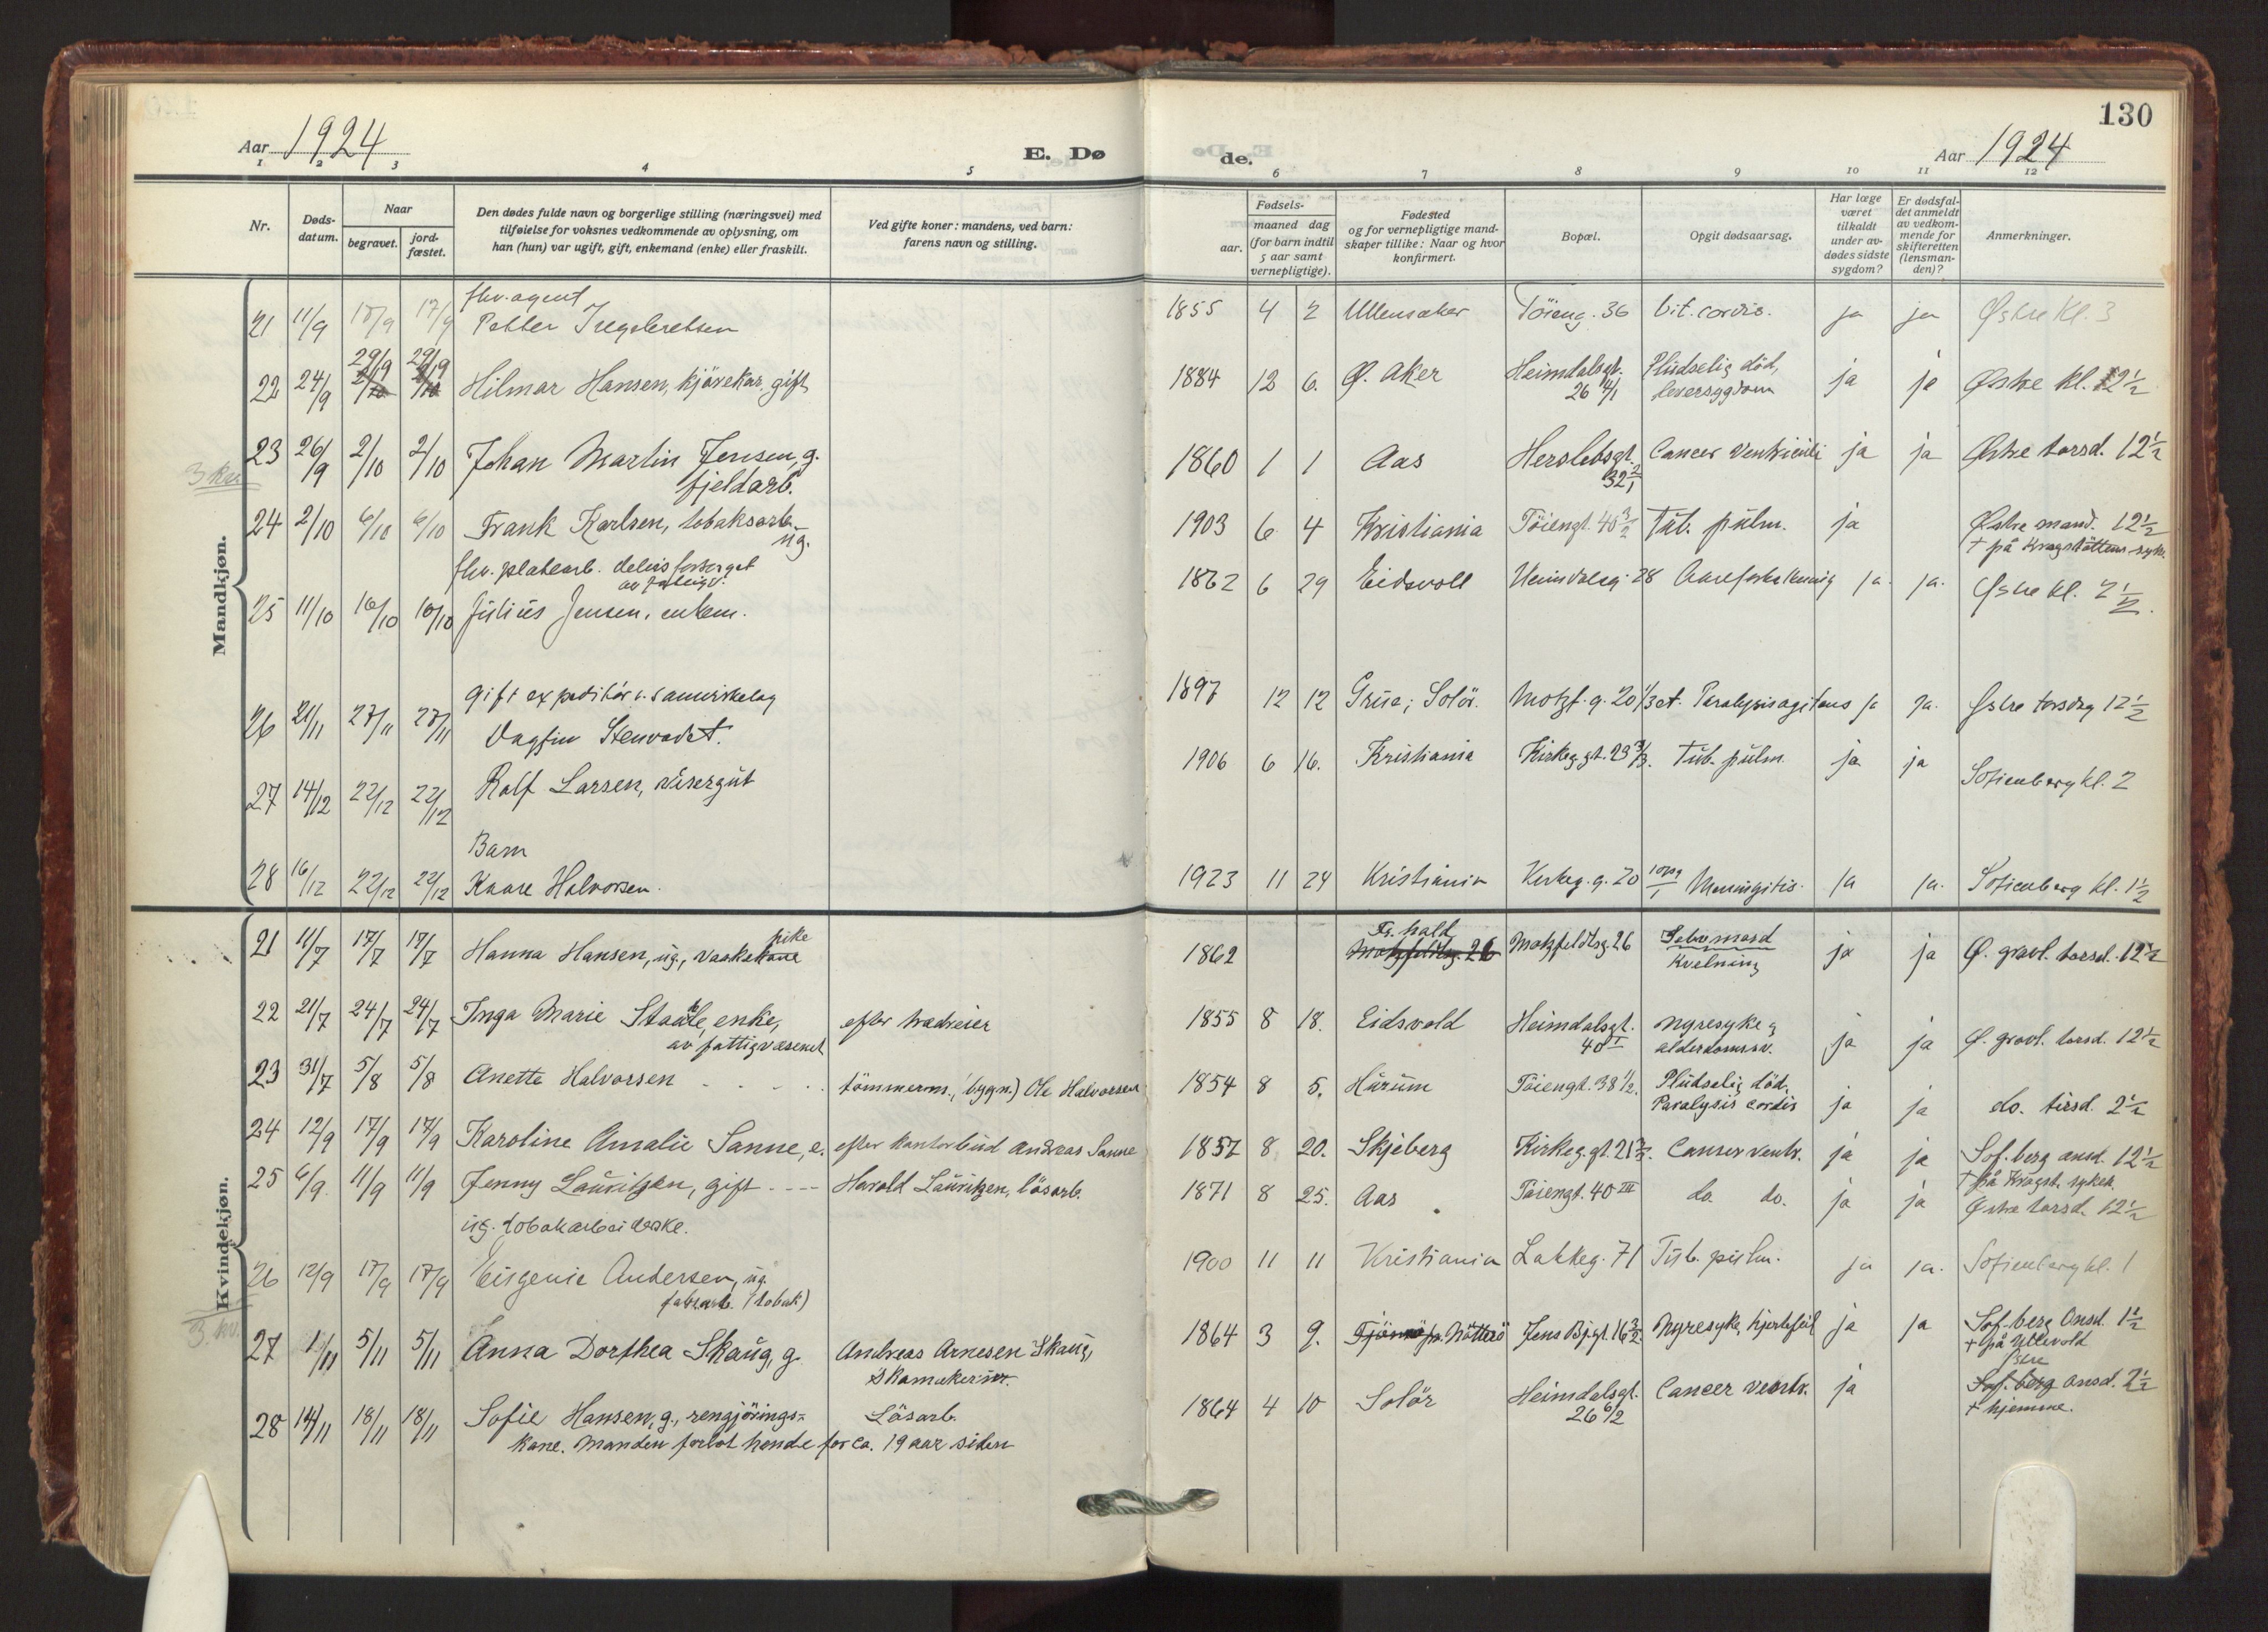 130
Aar 1924
E. Dø
de.
Aar 1924
1 2 3 4 5 6 7 8 9 10 11 12
Nr.
Døds-
datum.
Naar
begravet.
jord-
fæstet.
Den dødes fulde navn og borgerlige stilling (næringsvei) med
tilføielse for voksnes vedkommende av oplysning, om
han (hun) var ugift, gift, enkemand (enke) eller fraskilt.
Ved gifte koner: mandens, ved barn:
farens navn og stilling.
Fødsels-
aar.
maaned dag
(for barn indtil
5 aar samt
vernepligtige).
Fødested
og for vernepligtige mand-
skaper tillike: Naar og hvor
konfirmert.
Bopæl.
Opgit dødsaarsag.
Har læge
været
tilkaldt
under av-
dødes sidste
sygdom?
Er dødsfal-
det anmeldt
av vedkom-
mende for
skifteretten
(lensman-
den)?
Anmerkninger.
Mandkjøn.
fhv. agent
21 11/9 17/9 Petter 1855 4 2 Ullensaker Töieng. 36 Vit. cordis. ja ja Østre Kl. 3
29/9 29/9
22 24/9 2/10 2/10 Hilmar Hansen, kjörekar, gift 1884 12 6. Ø. Aker Heimdalsgt. 26 4/1 Pludselig död, leversygdom ja ja Østre kl. 12½
23 26/9 2/10 2/10 Johan Martin Jensen, g. 1860 1 1 Aas Herslebsgt. 32 2/1 Cancer ventriculi ja ja Østre torsd. 12½
fjeldarb.
24 2/10 6/10 6/10 Frank Karlsen, tobaksarb. ug. 1903 6 4 Kristiania Töiengt. 40 3/2 Tub. pulm. ja Østre mand. 12½
† på Krogstöttens syk.
fhv. platearb. delvis forsørget
av fattigv.
25 11/10 16/10 16/10 Julius Jensen, enkem. 1862 6 29 Eidsvoll Heimdalsg. 28 Aareforkalkning ja. ja. Østre kl. 2½.
gift expeditör i samvirkelag
26 21/11 27/11 27/11 Dagfin Stenvadet. 1897 12 12 Grue, Solör. Motzf. g. 20 1/3 et. Paralysis agitans ja ja. Østre torsdag 12½
27 14/12 22/12 22/12 Rolf Larsen, visergut 1906 6 16. Kristiania Kirkeg. gt. 23 3/3. Tub. pulm. ja ja Sofienberg kl. 2
Barn
28 16/12 22/12 22/12 Kaare Halvorsen. 1923 11 24 Kristiania Kirkeg. g. 20 Meningitis. ja ja. Sofienberg kl. 1½
Kvindekjøn.
pike
21 11/7 17/7 17/7 Hanna Hansen, ug., vaskekone 1862 Fr.hald Motzfeldtsg. 26 Motzfeldtsg 26 Selvmord Kvelning ja ja Ø. gravl. torsd. 12½
22 21/7 24/7 24/7 Inga Marie enke, efter trædreier 1855 8 18. Eidsvold Heimdalsgt. 40 I Nyresyke & alderdomssv. ja ja Ø. gravl. torsd. 12½
av fattigvæsenet
23 31/7 5/8 5/8 Anette Halvorsen tömmerm., (bygn.) Ole Halvorsen 1854 8 5. Hurum Töiengt. 38 1/2. Pludselig död. Paralysis cordis ja ja do. tirsd. 2½
24 12/9 17/9 17/9 Karoline Amalie Sanne, e. efter kontorbud Andreas Sanne 1857 8 20. Skjeberg Kirkeg. gt. 21 Canser ventr. ja ja Sof. berg onsd. 12½
† på Krogst. sykeh.
25 6/9 11/9 11/9 Jenny Lauritzen, gift Harald Lauritzen, lösarb. 1871 8 25. Aas Töiengt. 40 III do. do. ja ja Østre torsd. 12½
ug. tobakarbeiderske.
26 12/9 17/9 17/9 Eugenie Andersen, ug. 1900 11 11 Kristiania Lakkeg. 71 Tub. pulm. ja ja. Sofienberg kl. 1
fabrarb. (tobak)
27 1/11 5/11 5/11 Anna Dorthea Skaug, g. Andreas Arnesen Skaug, skomakerm. 1864 3 9. Tjömö pr. Nötterö Jens Bj.gt. 16 3/2. Nyresyke, hjertefeil ja ja Sof. berg Onsd. 1½
† på Ullevold
Østre
28 14/11 18/11 18/11 Sofie Hansen, g., rengjörings- Lösarb. 1864 4 10 Solör Heimdalsgt. 26 6/2 Cancer ventr. ja Sof. berg onsd. 2½
† hjemme.
kone. Manden forlot hende for ca. 19 aar siden